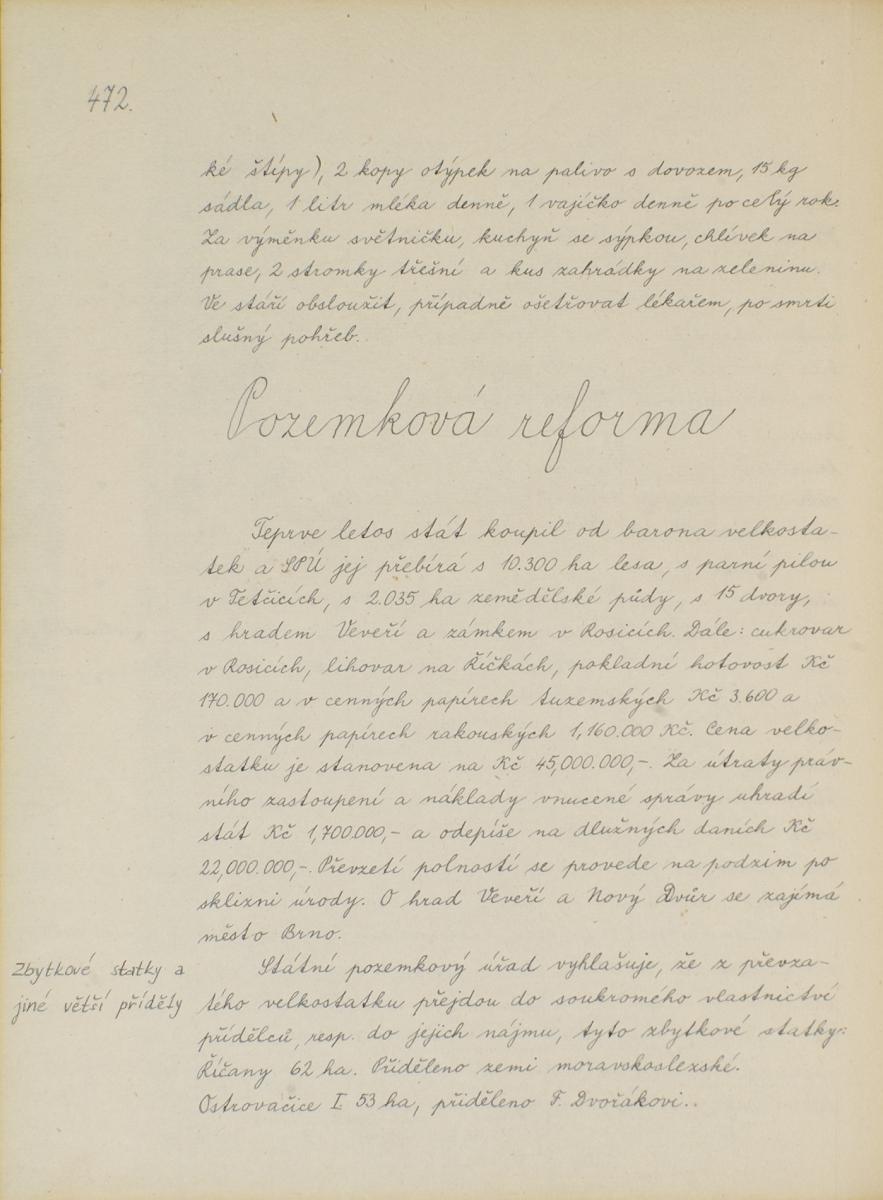 472.
ké štípy), 2 kopy otýpek na palivo s dovozem, 15 kg
sádla, 1 litr mléka denně, 1 vajíčko denně po celý rok.
Za výměnku světničku, kuchyň se sýpkou, chlívek na
prase, 2 stromky třešní a kus zahrádky na zeleninu.
Ve stáří obsloužit, případně ošetřovat lékařem, po smrti
slušný pohřeb.
Pozemková reforma
Teprve letos stát koupil od barona velkosta-
tek a SPÚ jej přebírá s 10.300 ha lesa, s parní pilou
v Tetčicích, s 2.035 ha zemědělské půdy, s 15 dvory,
s hradem Veveří a zámkem v Rosicích. Dále: cukrovar
v Rosicích, lihovar na Říčkách, pokladní hotovost Kč
170.000 a v cenných papírech tuzemských Kč 3.600 a
v cenných papírech rakouských 1,160.000 Kč. Cena velko-
statku je stanovena na Kč 45,000.000,-. Za útraty práv-
ního zastoupení a náklady vnucené správy uhradí
stát Kč 1,700.000,- a odepíše na dlužných daních Kč
22,000.000,-. Převzetí polností se provede na podzim po
sklizni úrody. O hrad Veveří a Nový Dvůr se zajímá
město Brno.
Zbytkové statky a
jiné větší příděly
Státní pozemkový úřad vyhlašuje, že z převza-
tého velkostatku přejdou do soukromého vlastnictví
přídělců, resp. do jejich nájmu, tyto zbytkové statky:
Říčany 62 ha. Přiděleno zemi moravskoslezské.
Ostrovačice I. 53 ha, přiděleno F. Dvořákovi..